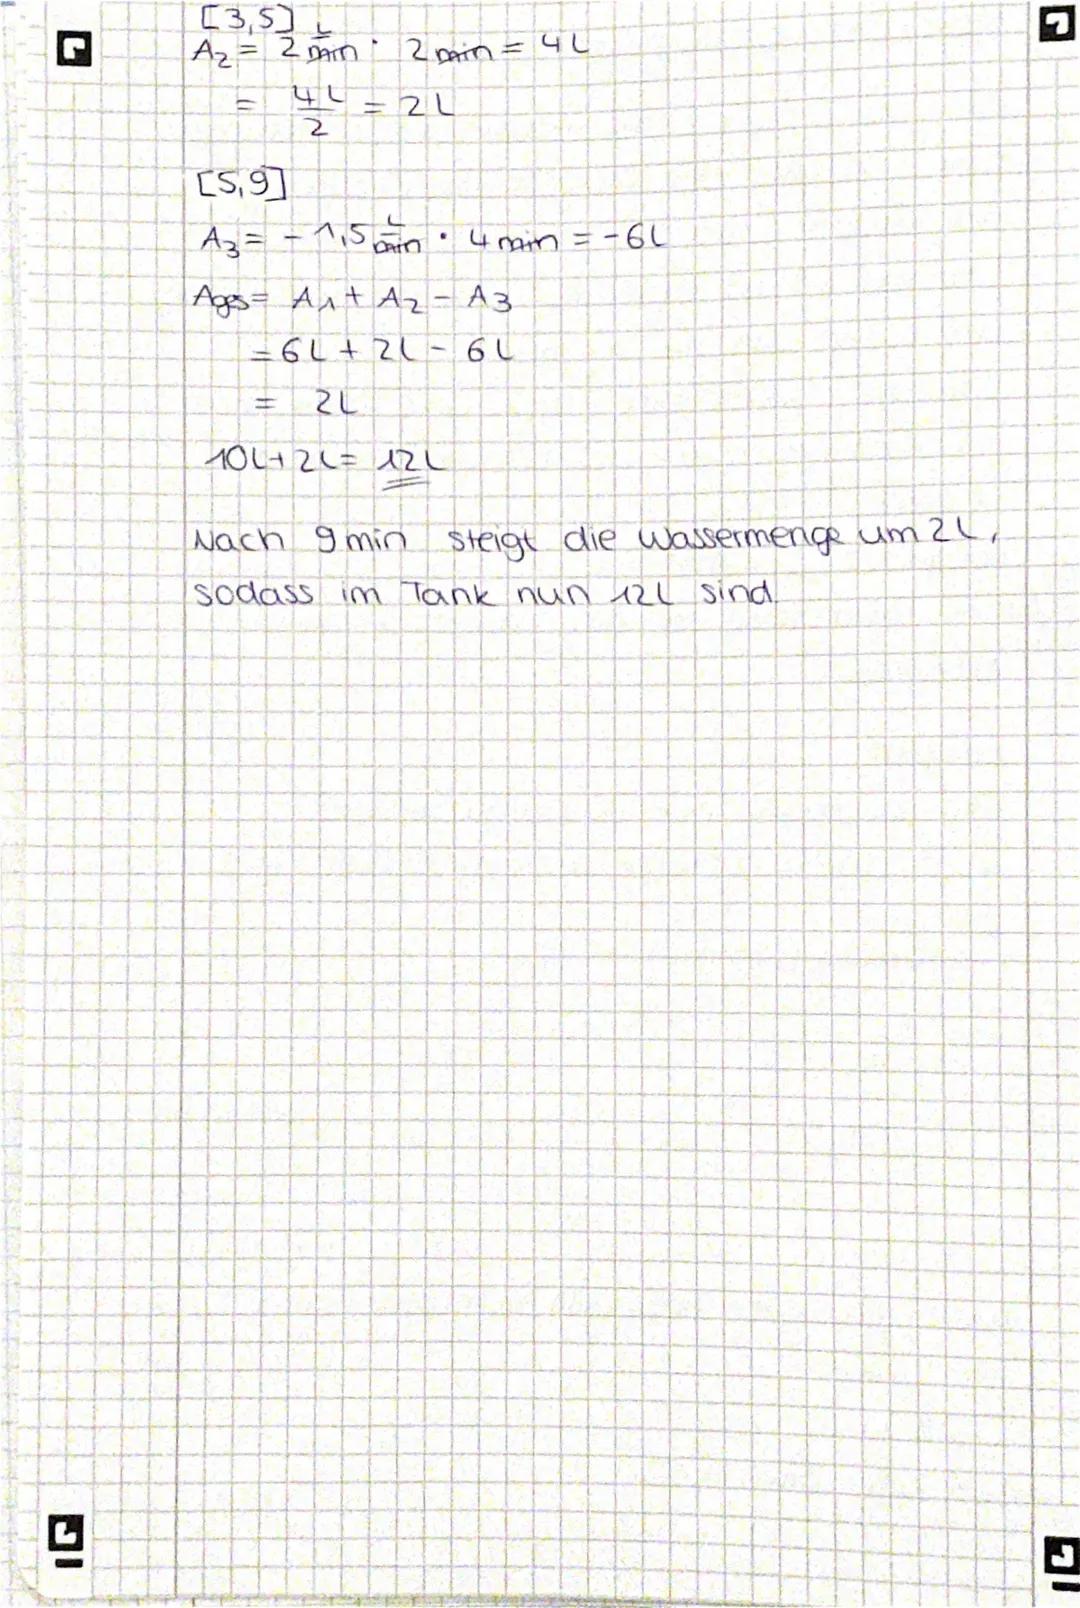 [3,5]
A₂ = 2 L/min · 2 min = 4L
= 4L/2 = 2L
[5,9]
A₃ = - 1,5 L/min · 4 min = -6L
Ages = A₁ + A₂ - A₃
= 6L + 2L - 6L
= 2L
10L + 2L = 12L
Nach 9min steigt die Wassermenge um 2L,
sodass im Tank nun 12L sind.